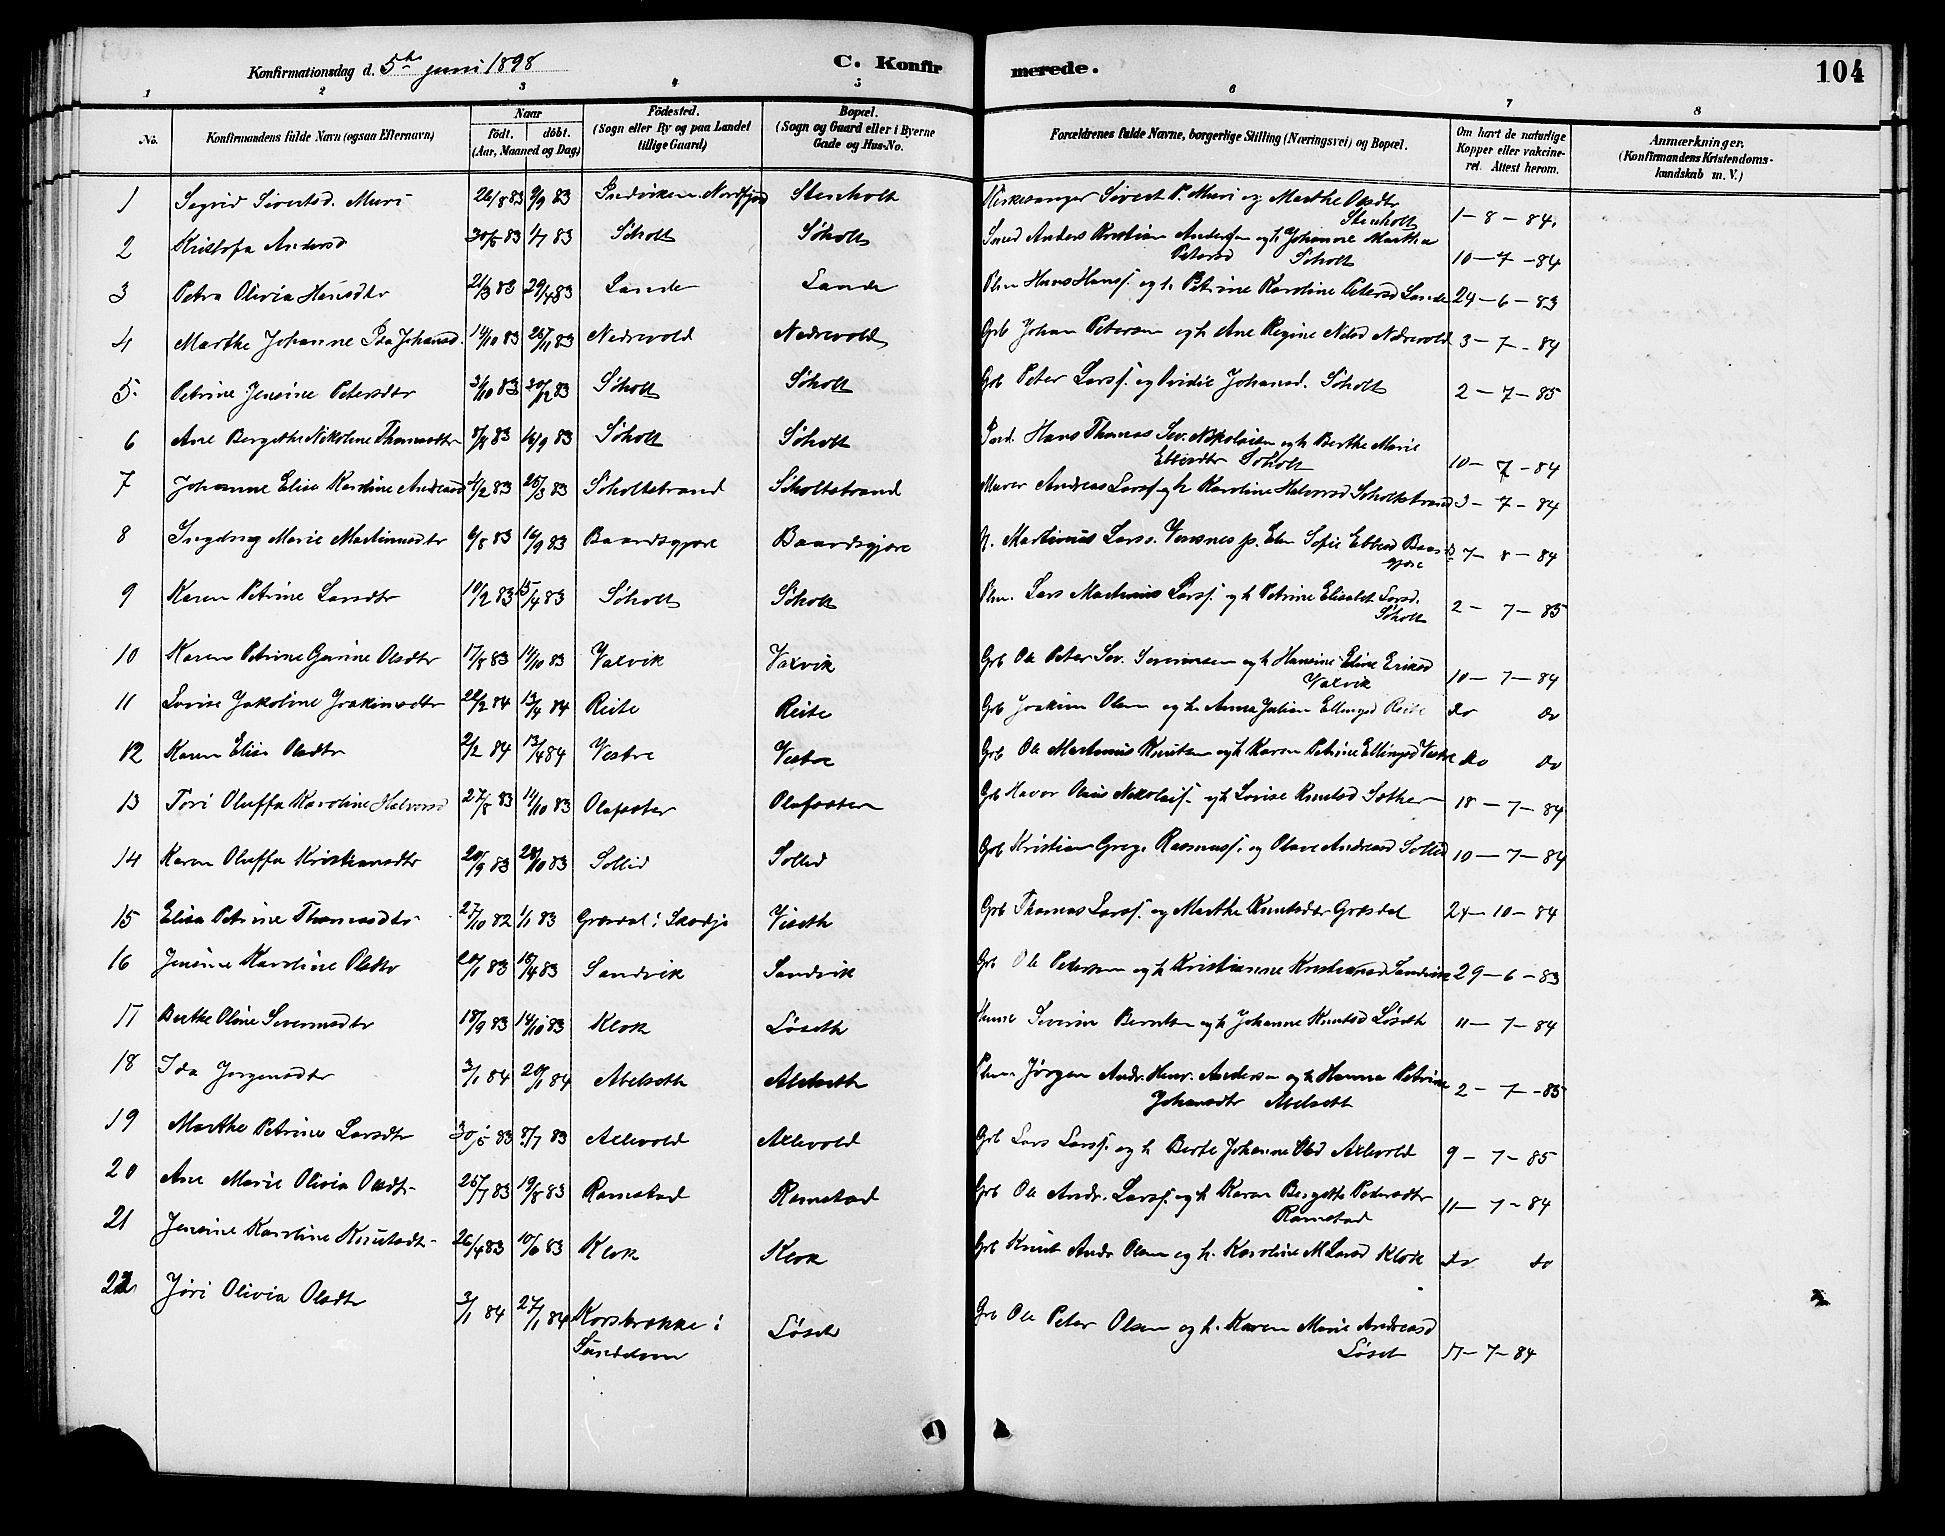 Konfirmationsdag d. 5te juni 1898 C. Konfirmerede. 104
1 2 3 4 5 6 7 8
No. Konfirmandens fulde Navn (ogsaa Efternavn) Naar födt. döbt. (Aar, Maaned og Dag) Födested. (Sogn eller By og paa Landet tillige Gaard) Bopæl. (Sogn og Gaard eller i Byerne Gade og Hus-No. Forældrenes fulde Navne, borgerlige Stilling (Næringsvei) og Bopæl. Om havt de naturlige Kopper eller vakcineret. Attest herom. Anmærkninger. (Konfirmandens Kristendomskundskab m. V.)
1 Sigrid Sivertsd. Muri 26/8 83 9/9 83 Indviken Nordfjord Stenholt Kirkesanger Sivert P. Muri og Marthe Olsdtr Stenholt 1-8-84.
2 Kristofa Andersd 30/5 83 1/7 83 Söholt Søholt Smed Anders Kristian Andersen og h Johanne Marthea Petersd Söholt 10-7-84
3 Petra Olivia Hansdtr 21/3 83 29/4 83 Lande Lande Plm Hans Hanss. og h. Petrine Karoline Petersd Lande 24-6-83
4 Marthe Johanne Ida Johansd. 14/10 83 25/11 83 Nedrevold Nedrevold Grb Johan Petersen og h Ane Regine Nilsd Nedrevold 3-7-84
5 Petrine Jensine Petersdtr 31/10 83 30/12 83 Söholt Søholt Grb Peter Larss. og Ovidie Johansd. Søholt 2-7-85
6 Ane Bergethe Nikoline Thomasdtr 8/8 83 16/9 83 Söholt Søholt Hans Thomas Sev. Nikolaisen og h Berthe Marie Ebbesdtr Soholt 10-7-84
7 Johanne Elise Karoline Andreasd 4/2 83 26/3 83 Söholtstrand Söholtstrand Murer Andreas Larss og h Karoline Halvorsd Söholtstrand 3-7-84
8 Ingeborg Marie Martinusdtr 6/8 83 16/9 83 Baardsgjære Baardsgjære Martinius Larss. Vensnes p. Elen Sofie Ebbesd Baardsgjære 7-8-84
9 Karen Petrine Larsdtr 19/2 83 15/4 83 Söholt Søholt Plm. Lars Martinius Larss. og h Petrine Elisabet Larsd. Søholt 2-7-85
10 Karen Petrine Gurine Olsdtr 17/8 83 14/10 83 Valvik Valvik Grb Ole Peter Sev. Severinsen og h Hansine Eline Eriksd Valvik 10-7-84
11 Lovise Jakoline Joakimsdtr 22/2 84 13/4 84 Reite Reite Grb Joakim Olsen og h. Anna Juline Ellingsd Reite do do
12 Karen Elise Olsdtr 2/2 84 13/4 84 Vestre Vestre Grb Ole Martinus Knutsen og h Karen Petrine Ellingsd Vestre do do
13 Tori Oluffa Karoline Halvorsd 27/8 83 14/10 83 Olafsæter Olafsæter Grb Havor Olaus Nikolais. og h Lovise Knutsd 18-7-84
14 Karen Oluffa Kristiansdtr 20/9 83 28/10 83 Sollid Sollid Grb Kristian Greg. Rasmuss. og Olave Andreasd Sollid 10-7-84
15 Elise Petrine Thomasdtr 27/10 82 1/1 83 Græsdal i Skodje Viseth Grb Thomas Larss. og Marthe Knutsdtr Græsdal 24-10-84
16 Jensine Karoline Olsdtr 20/1 83 15/4 83 Sandvik Sandvik Grb Ole Petersen og h Kristianne Kristiansd Sandvik 29-6-83
17 Berthe Oline Severinsdtr 18/9 83 14/10 83 Klok Løseth Severin Berntsen og h Johanne Knutsd Løseth 11-7-84
18 Ida Jørgensdtr 3/1 84 20/1 84 Abelseth Abelseth Plm Jørgen Andr. Henr. Andersen og h Hanna Petrine Johansdtr Abelseth 2-7-85
19 Marthe Petrine Larsdtr 30/5 83 8/7 83 Allevold Allevold Grb Lars Larss. og h Berte Johanne Olsd Allevold 9-7-85
20 Ane Marie Olivia Olsdtr 25/7 83 19/8 83 Ramstad Ramstad Grb Ole Andr. Larss. og h Karen Bergethe Pedersdtr Ramstad 11-7-84
21 Jensine Karoline Knutsdtr 26/4 83 10/6 83 Klok Klok Grb Knut Andr Olsen og h. Karoline M Larsd Klok do do
22 Jøri Olivia Olsdtr 3/1 84 27/1 84 Korsbrække i Sunddelven Løseth Grb Ole Peter Olsen og h. Karen Marie Andreasd Løset 11-7-84